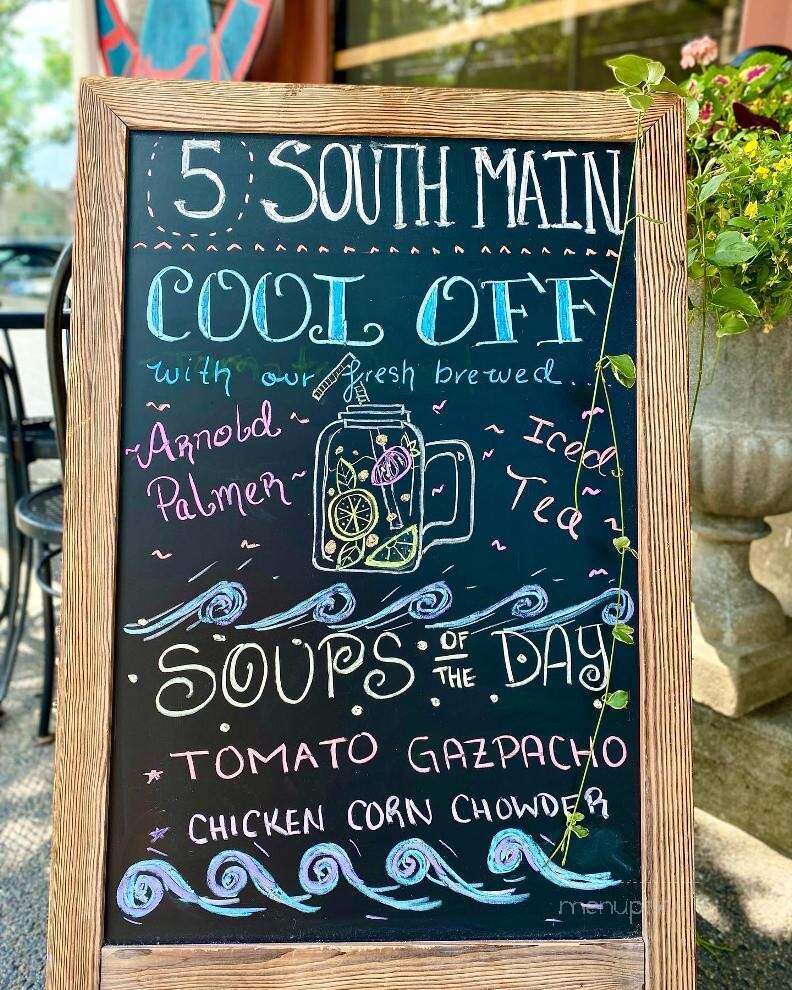 5 SOUTH MAIN
COOL OFF
with our fresh brewed...
Arnold
Palmer
Iced
Tea
SOUPS OF THE DAY
TOMATO GAZPACHO
CHICKEN CORN CHOWDER